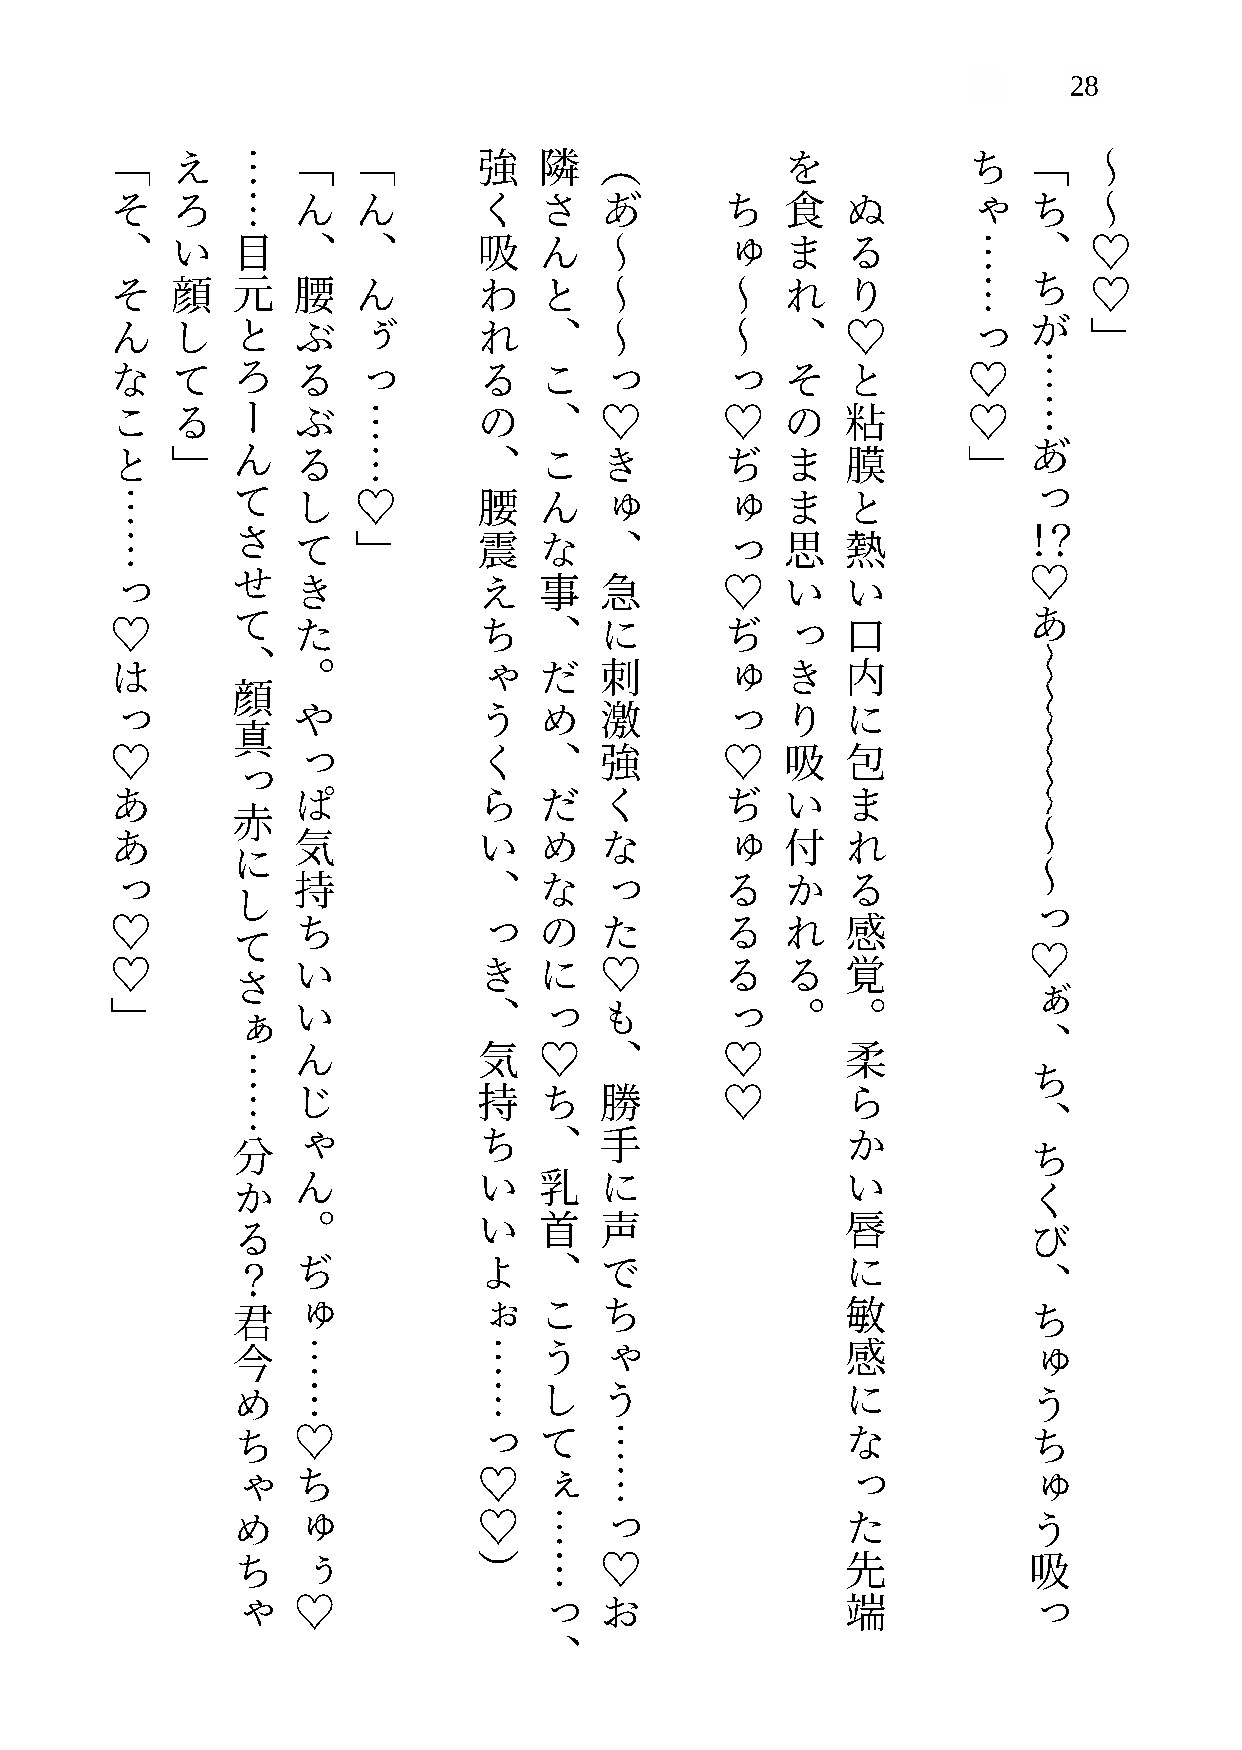 28
～～♡♡」
「ち、ちが……あ゛っ!?♡あ～～～～～～っ♡ぁ゛、ち、ちくび、ちゅうちゅう吸っ
ちゃ……っ♡♡」
ぬるり♡と粘膜と熱い口内に包まれる感覚。柔らかい唇に敏感になった先端
を食まれ、そのまま思いっきり吸い付かれる。
ちゅ～～っ♡ぢゅっ♡ぢゅっ♡ぢゅるるるっ♡♡
(あ゛～～～っ♡きゅ、急に刺激強くなった♡も、勝手に声でちゃう……っ♡お
隣さんと、こ、こんな事、だめ、だめなのにっ♡ち、乳首、こうしてぇ……っ、
強く吸われるの、腰震えちゃうくらい、っき、気持ちいいよぉ……っ♡♡)
「ん、んゔっ……♡」
「ん、腰ぶるぶるしてきた。やっぱ気持ちいいんじゃん。ぢゅ……♡ちゅぅ♡
……目元とろーんてさせて、顔真っ赤にしてさぁ……分かる？君今めちゃめちゃ
えろい顔してる」
「そ、そんなこと……っ♡はっ♡ああっ♡♡」